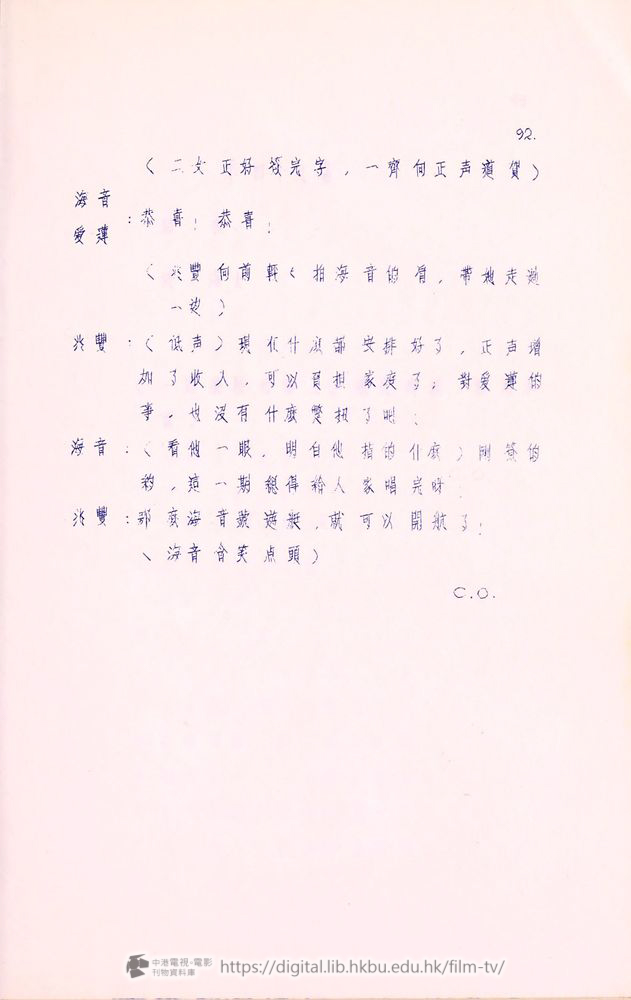 92.
（二女正好簽完字，一齊向正声道賀）
海音
愛蓮：恭喜！恭喜！
（兆豐向前輕々拍海音的肩，帶她走過
一边）
兆豐：（低声）現在什庅都安排好了，正声增
加了收入，可以負担家庭了；對愛蓮的
事，也沒有什麽彆扭了吧！
海音：（看他一眼，明白他指的什麽）剛簽的
約，這一期總得給人家唱完呀
兆豐：那麽海音號遊艇，就可以開航了！
（海音含笑点頭）
C.O.
中港電視·電影
刊物資料庫
https://digital.lib.hkbu.edu.hk/film-tv/